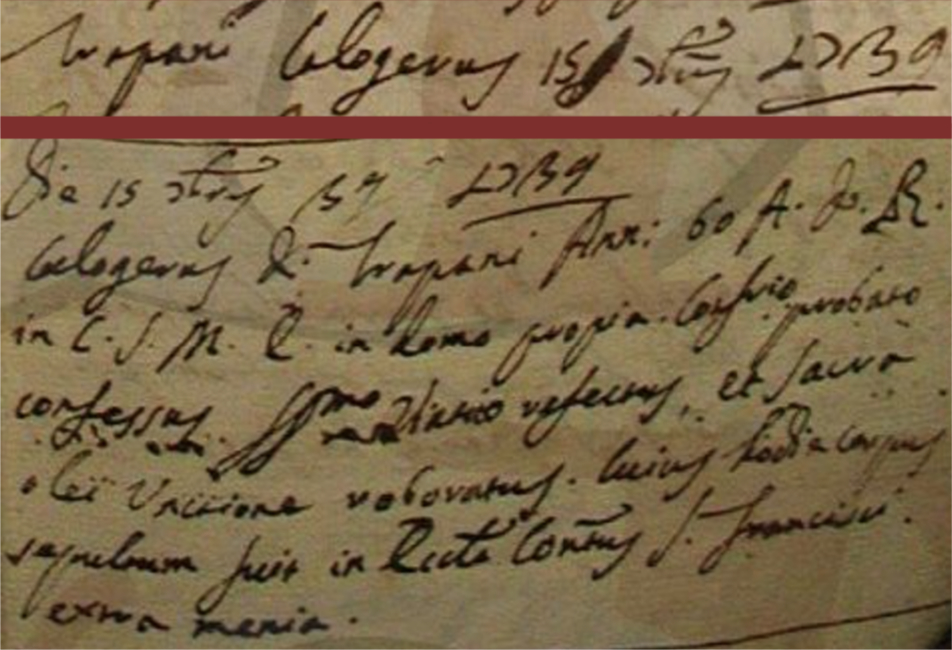 Trapani Calogerus 15 Xbris 1739
Die 15 Xbris 3ª Ind. 1739
Calogerus de Trapani Ann: 60 A. D. R.
in C. S. M. E. in domo propria. Confrio probato
confessus. SSmo Viatico refectus, et Sacra
olei Unctione roboratus. Cuius hodie corpus
sepultum fuit in Eccta Contus S. Francisci
extra menia.